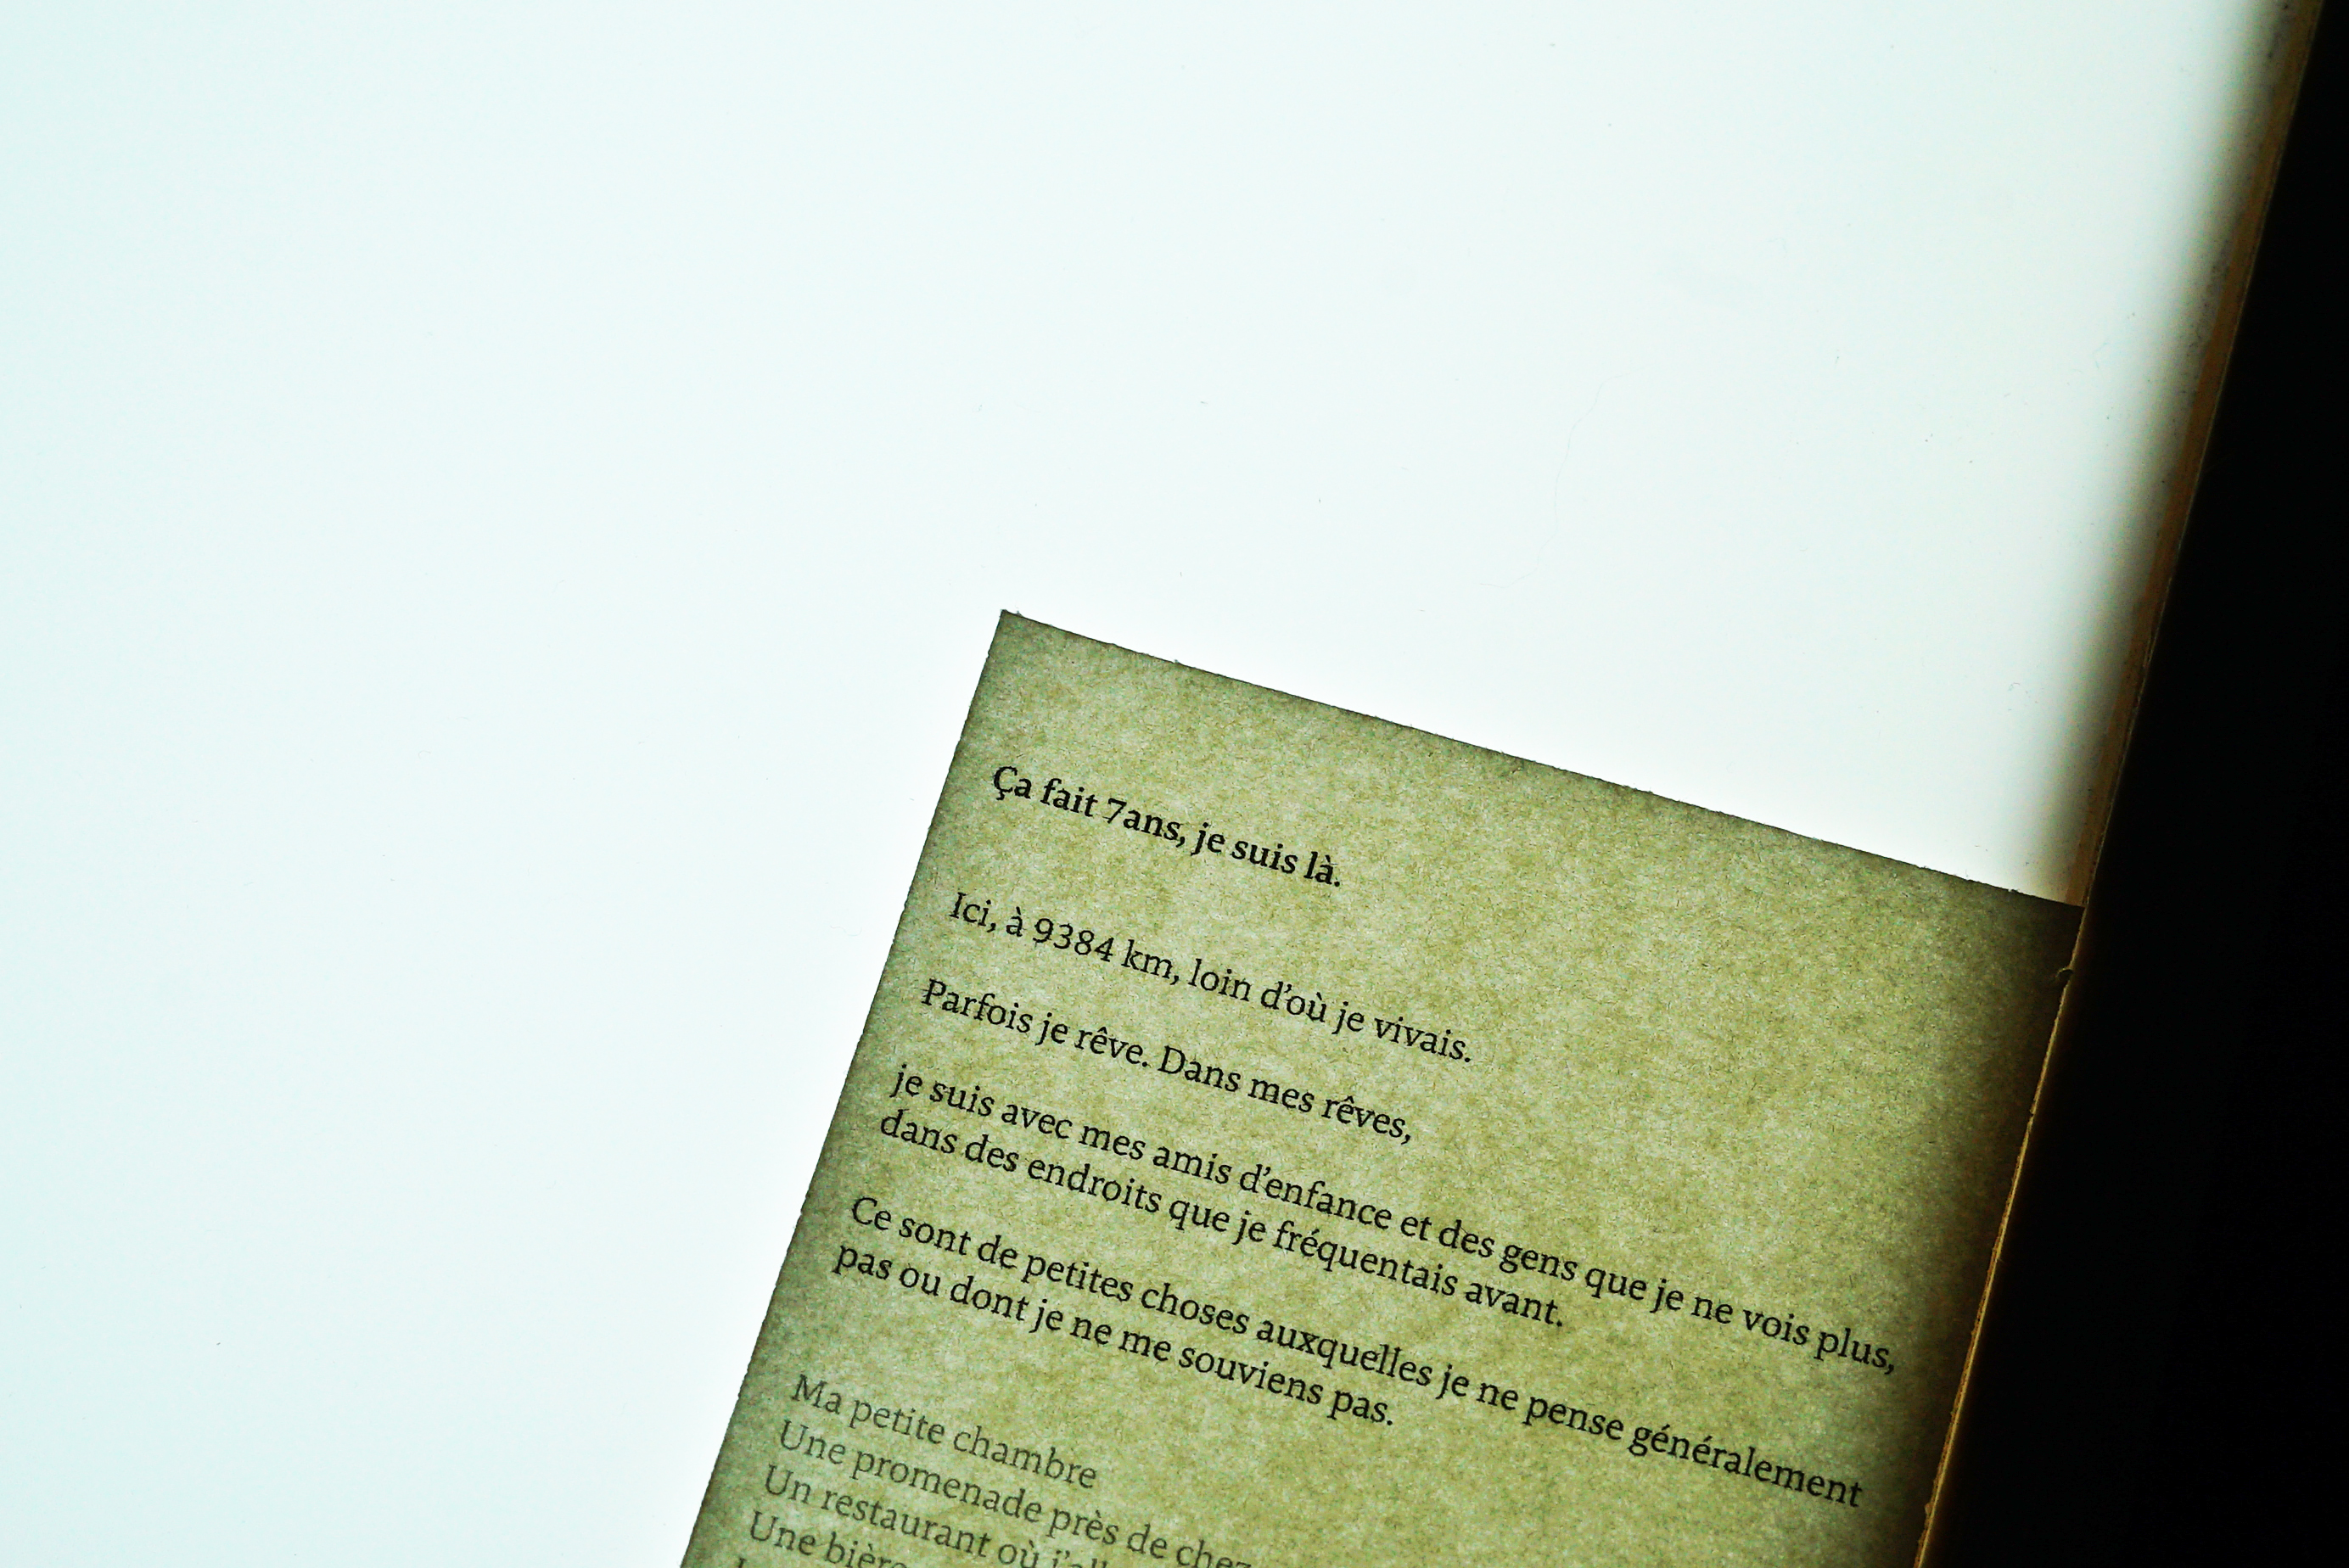 Ça fait 7ans, je suis là.
Ici, à 9384 km, loin d’où je vivais.
Parfois je rêve. Dans mes rêves,
je suis avec mes amis d’enfance et des gens que je ne vois plus,
dans des endroits que je fréquentais avant.
Ce sont de petites choses auxquelles je ne pense généralement
pas ou dont je ne me souviens pas.
Ma petite chambre
Une promenade près de chez
Un restaurant où
Une bière